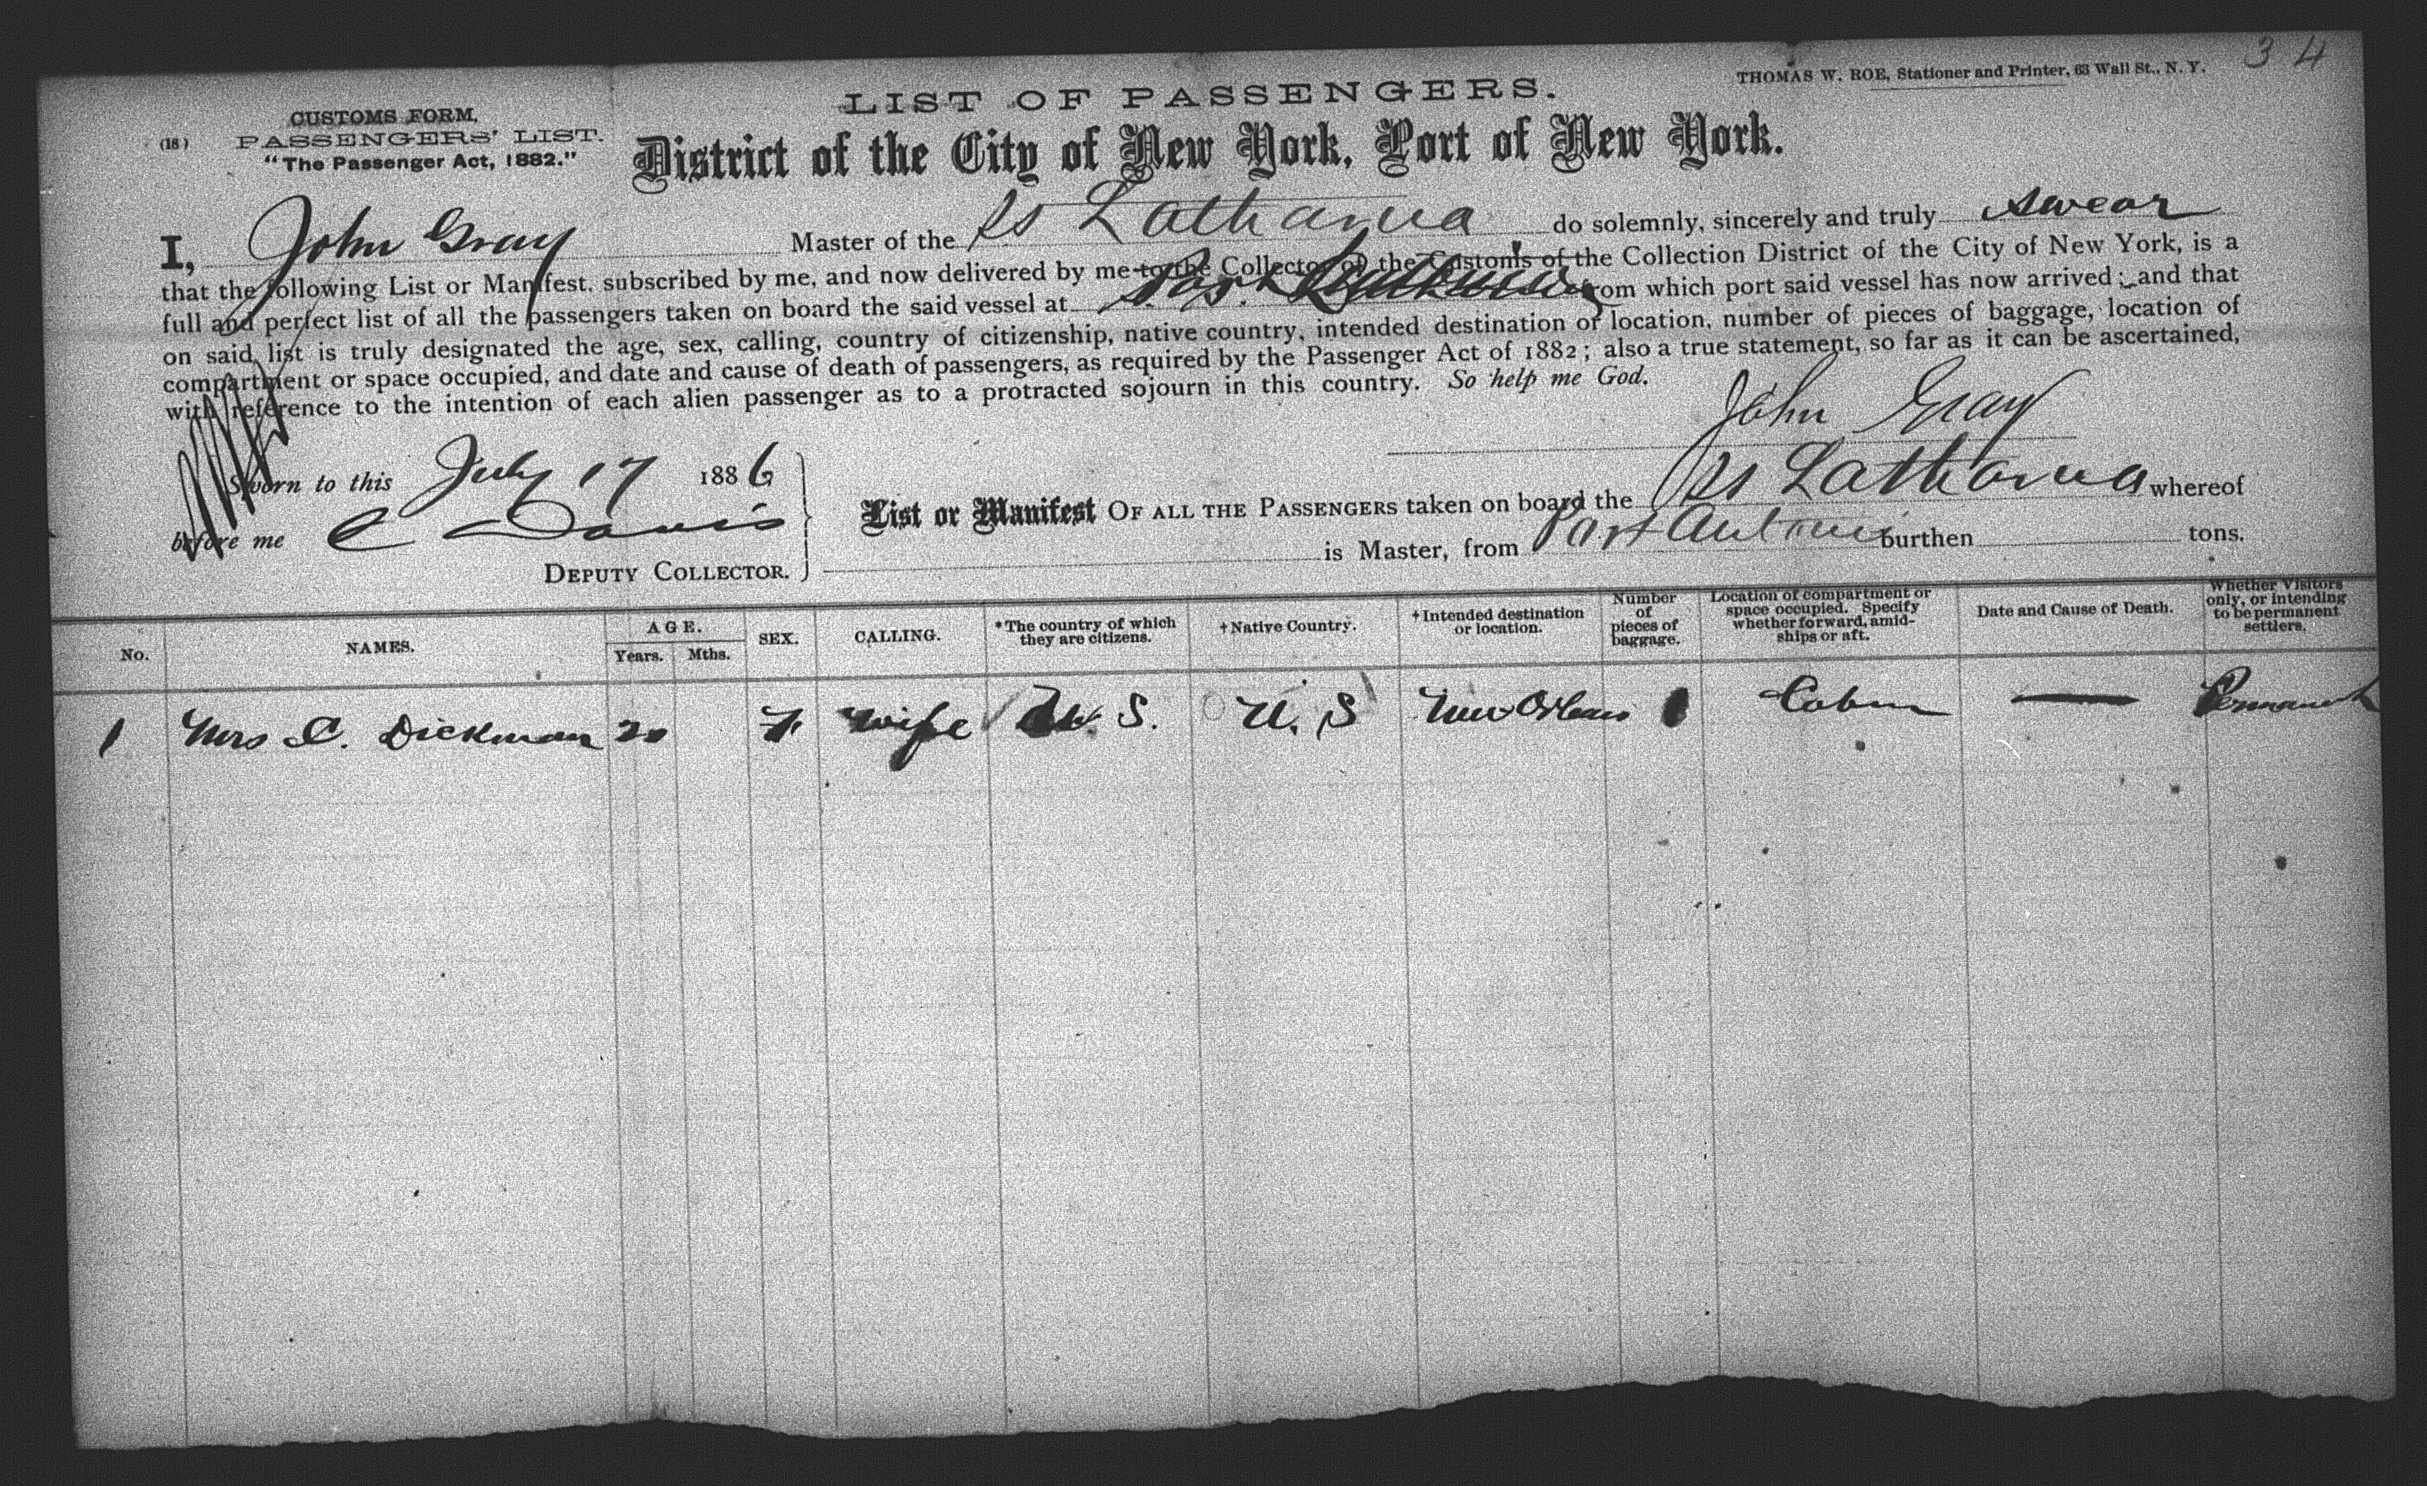 34
THOMAS W. ROE, Stationer and Printer, 63 Wall St., N. Y.
LIST OF PASSENGERS.
CUSTOMS FORM,
(18) PASSENGERS' LIST.
"The Passenger Act, 1882."
District of the City of New York, Port of New York.
I, John Gray Master of the SS Latharna do solemnly, sincerely and truly swear
that the following List or Manifest, subscribed by me, and now delivered by me to the Collector of the Customs of the Collection District of the City of New York, is a
full and perfect list of all the passengers taken on board the said vessel at Port from which port said vessel has now arrived; and that
on said list is truly designated the age, sex, calling, country of citizenship, native country, intended destination or location, number of pieces of baggage, location of
compartment or space occupied, and date and cause of death of passengers, as required by the Passenger Act of 1882; also a true statement, so far as it can be ascertained,
with reference to the intention of each alien passenger as to a protracted sojourn in this country. So help me God.
John Gray
Sworn to this July 17 1886
before me C Davis
DEPUTY COLLECTOR.
List or Manifest OF ALL THE PASSENGERS taken on board the SS Latharna whereof
is Master, from Port Antonio burthen tons.
No. NAMES. AGE. Years. Mths. SEX. CALLING. *The country of which they are citizens. †Native Country. †Intended destination or location. Number of pieces of baggage. Location of compartment or space occupied. Specify whether forward, amidships or aft. Date and Cause of Death. Whether Visitors only, or intending to be permanent settlers.
1 Mrs C. Dickman 20 F. Wife U. S. U. S New Orleans Cabin — Permanent